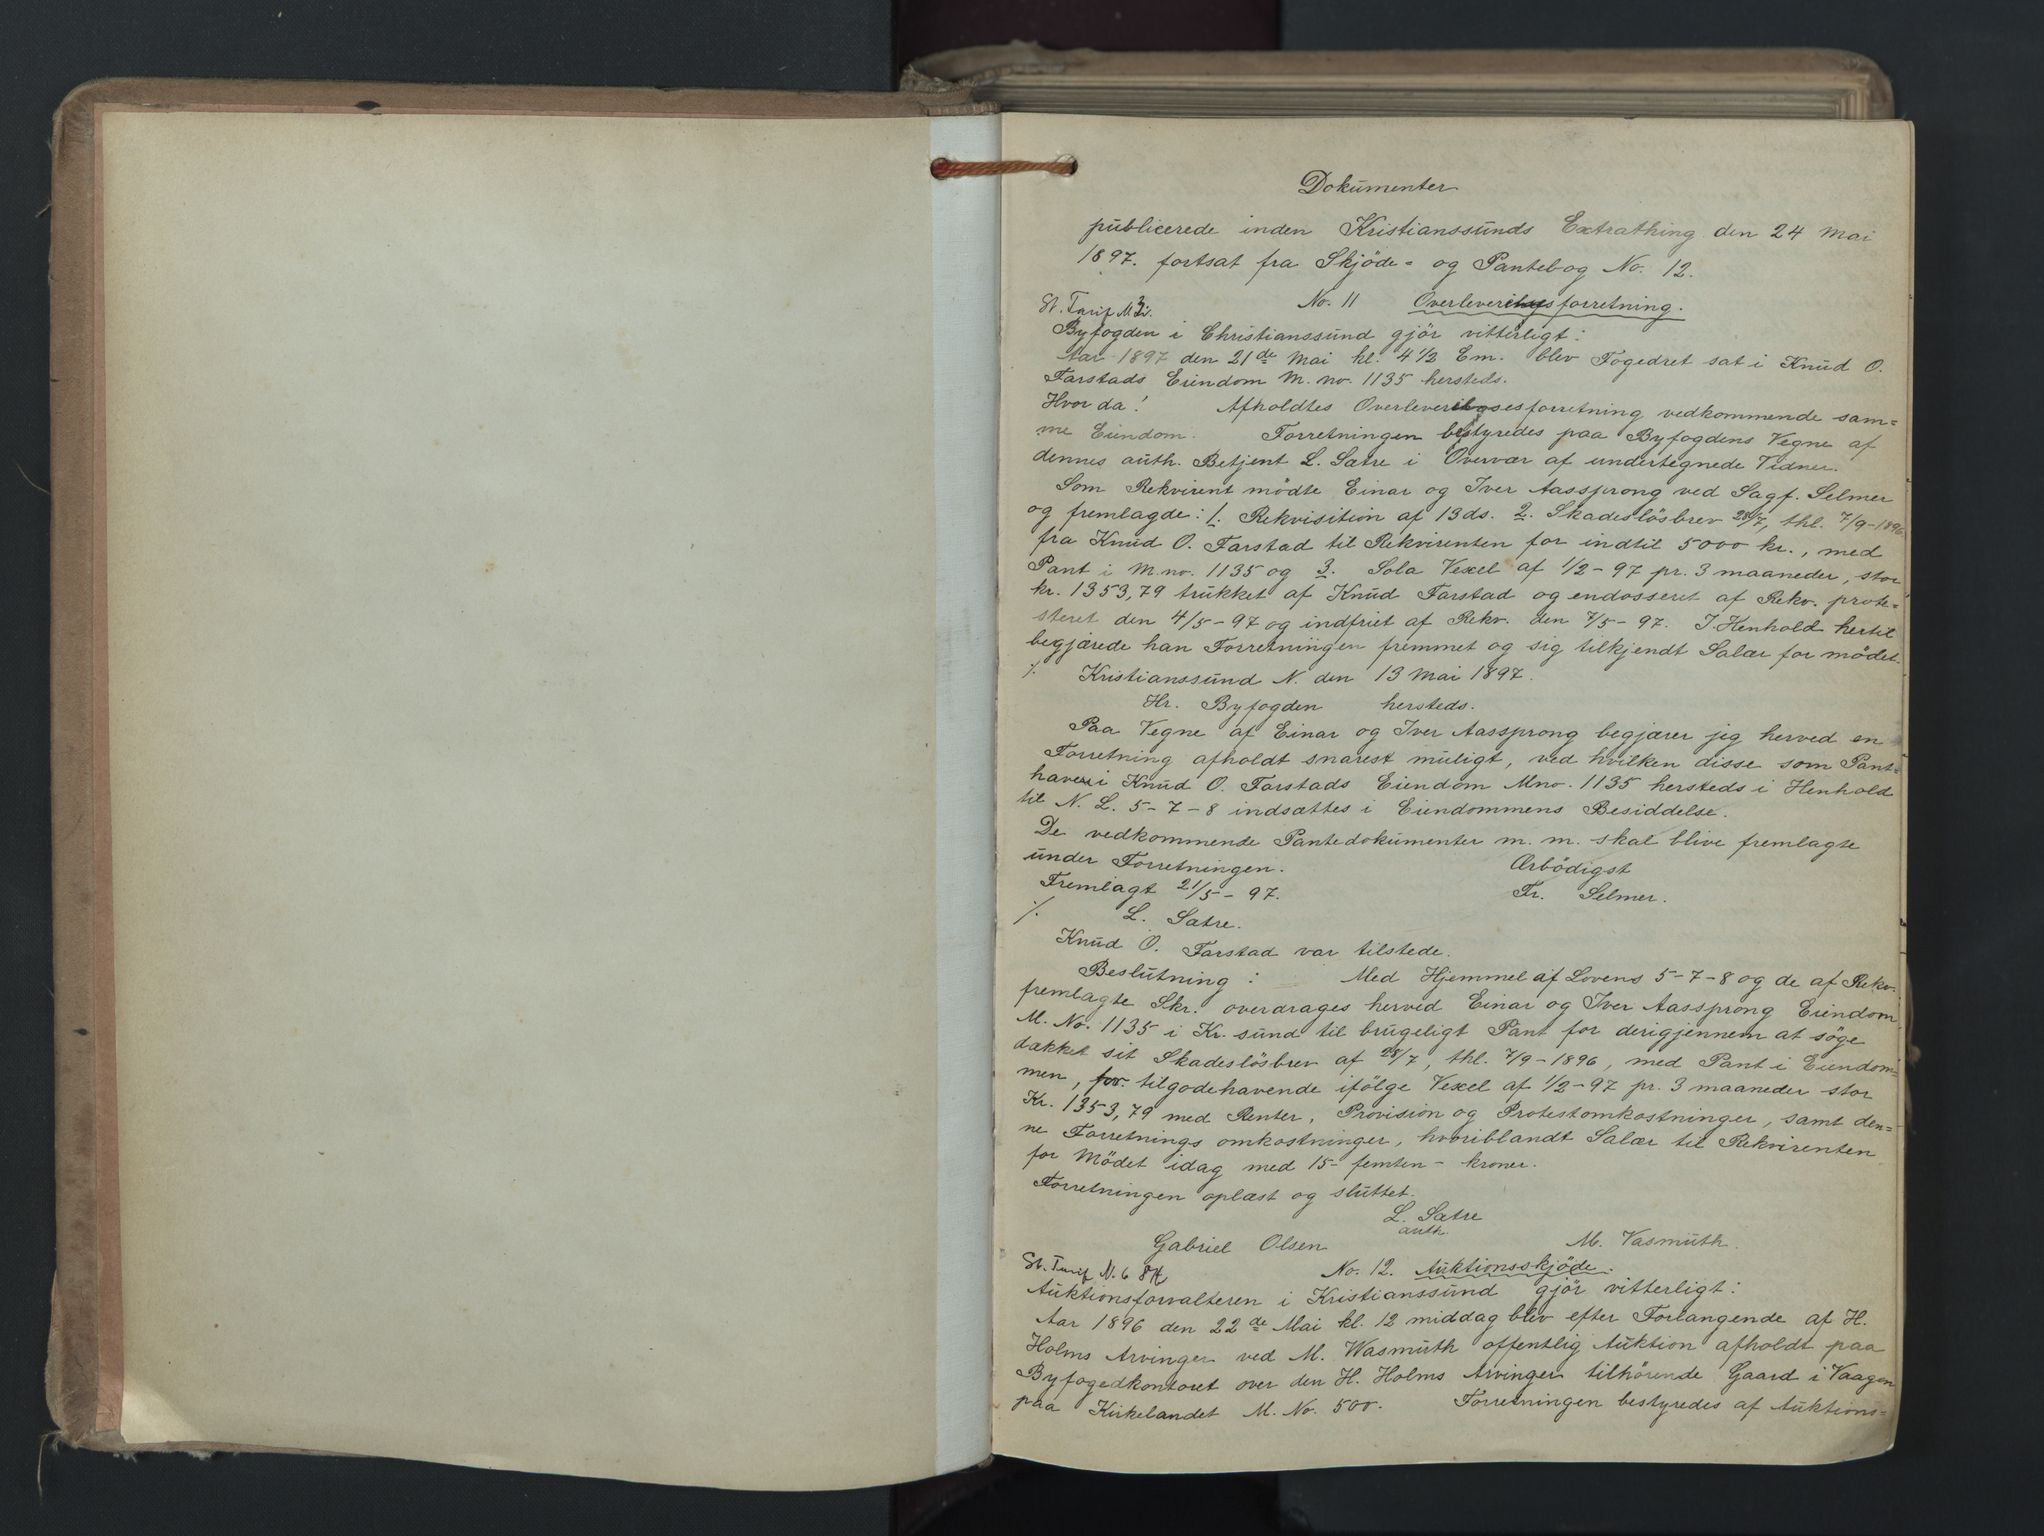 Dokumenter
publicerede inden Kristianssunds Extrathing den 24 Mai
1897. fortsat fra Skjöde- og Pantebog No. 12.
St. Tarif N. No. 11 Overleverforretning.
Byfogden i Christianssund gjör vitterligt:
Aar 1897 den 21de Mai kl. 4 1/2 Em. blev Fogedret sat i Knud O.
Farstads Eiendom M. no. 1135 hersteds.
Hvor da! Afholdtes Overleverforretning vedkommende sam=
me Eiendom. Forretningen bestyredes paa Byfogdens Vegne af
dennes auth. Betjent L. Sætre i Overvær af undertegnede Vidner.
Som Rekvirent mödte Einar og Iver Aassprong ved Sagf. Selmer
og fremlagde: 1. Rekvisition af 13 ds. 2. Skadeslösbrev 28/7, thl. 7/9-1896
fra Knud O. Farstad til Rekvirenten for indtil 5000 kr., med
Pant i M.no. 1135 og 3. Sola Vexel af 1/2-97 pr. 3 maaneder, stor
kr. 1353,79 trukket af Knud Farstad og endosseret af Rekv. prote=
steret den 4/5-97 og indfriet af Rekv. den 7/5-97. I Henhold hertil
begjærede han Forretningen fremmet og sig tilkjendt Salær for mödet.
./. Kristianssund N. den 13 Mai 1897.
Hr. Byfogden hersteds.
Paa Vegne af Einar og Iver Aassprong begjærer jeg herved en
Forretning afholdt snarest muligt, ved hvilken disse som Pant=
havere i Knud O. Farstads Eiendom Mno. 1135 hersteds i Henhold
til N. L. 5-7-8 indsættes i Eiendommens Besiddelse.
De vedkommende Pantedokumenter m. m. skal blive fremlagte
under Forretningen. Ærbödigst
Fremlagt 21/5-97. Fr. Selmer.
./. L. Sætre.
Knud O. Farstad var tilstede.
Beslutning: Med Hjemmel af Lovens 5-7-8 og de af Rekv.
fremlagte Skr. overdrages herved Einar og Iver Aassprong Eiendom
M. No. 1135 i Kr. sund til brugeligt Pant for derigjennem at söge
dækket sit Skadeslösbrev af 28/7, thl. 7/9-1896, med Pant i Eiendom=
men, for tilgodehavende ifölge Vexel af 1/2-97 pr. 3 maaneder stor
Kr. 1353,79 med Renter, Provision og Protestomkostninger, samt den=
ne Forretnings omkostninger, hvoriblandt Salær til Rekvirenten
for Mödet idag med 15- femten - kroner.
Forretningen oplæst og sluttet.
L. Sætre
auth.
Gabriel Olsen M. Vasmuth.
St. Tarif N. 6 No. 12. Auktionsskjöde.
Auktionsforvalteren i Kristianssund gjör vitterligt:
Aar 1896 den 22de Mai kl. 12 middag blev efter Forlangende af H.
Holms Arvinger ved M. Wasmuth offentlig Auktion afholdt paa
Byfogedkontoret over den H. Holms Arvinger tilhörende Gaard i Vaagen
paa Kirkelandet M. No. 500. Forretningen bestyredes af Auktions=